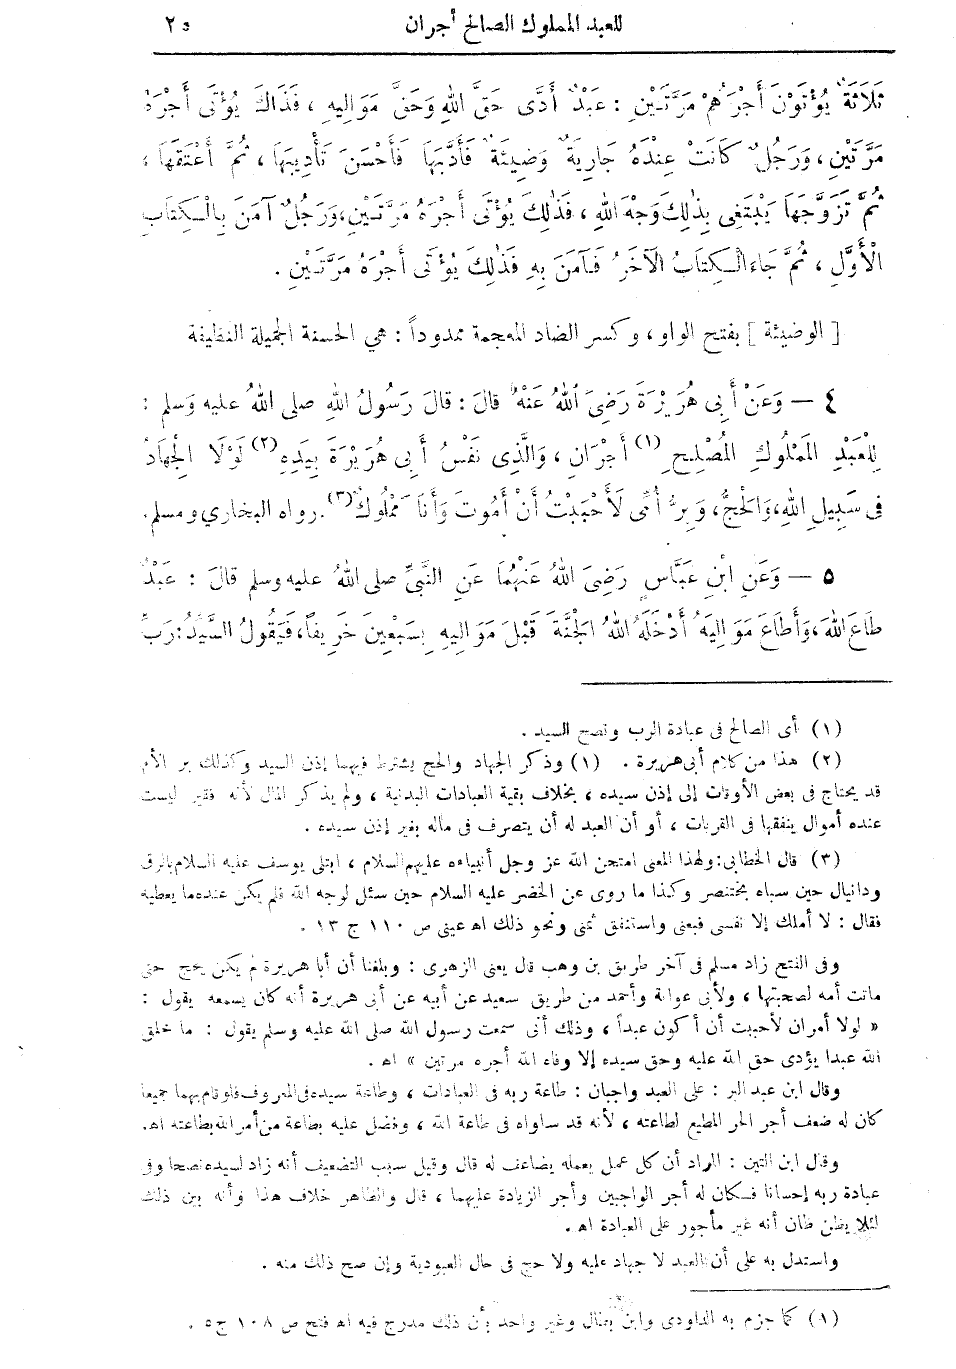 للعبد المملوك الصالح أجران ٢٥
ثَلَاثَةٌ يُؤْتَوْنَ أَجْرَهُمْ مَرَّتَيْنِ : عَبْدٌ أَدَّى حَقَّ اللهِ وَحَقَّ مَوَالِيهِ ، فَذَاكَ يُؤْتَى أَجْرَهُ
مَرَّتَيْنِ ، وَرَجُلٌ كَانَتْ عِنْدَهُ جَارِيَةٌ وَضِيئَةٌ فَأَدَّبَهَا فَأَحْسَنَ تَأْدِيبَهَا ، ثُمَّ أَعْتَقَهَا ،
ثُمَّ تَزَوَّجَهَا يَبْتَغِى بِذٰلِكَ وَجْهَ اللهِ ، فَذٰلِكَ يُؤْتَى أَجْرَهُ مَرَّتَيْنِ ، وَرَجُلٌ آمَنَ بِالْكِتَابِ
الْأَوَّلِ ، ثُمَّ جَاءَ الْكِتَابُ الْآخَرُ فَآمَنَ بِهِ فَذٰلِكَ يُؤْتَى أَجْرَهُ مَرَّتَيْنِ .
[ الوضيئة ] بفتح الواو ، وكسر الضاد المعجمة ممدوداً : هي الحسنة الجميلة النظيفة
٤ — وَعَنْ أَبِى هُرَيْرَةَ رَضِىَ اللهُ عَنْهُ قالَ : قالَ رَسُولُ اللهِ صلى اللهُ عليه وَسلم :
لِلْعَبْدِ الْمَمْلُوكِ الْمُصْلِحِ (١) أَجْرَانِ ، وَالَّذِى نَفْسُ أَبِى هُرَيْرَةَ بِيَدِهِ (٢) لَوْلَا الْجِهَادُ
فى سَبِيلِ اللهِ ، وَالْحَجُّ ، وَبِرُّ أُمِّى لَأَحْبَبْتُ أَنْ أَمُوتَ وَأَنَا مَمْلُوكٌ (٣) . رواه البخاري ومسلم .
٥ — وَعَنِ ابْنِ عَبَّاسٍ رَضِىَ اللهُ عَنْهُمَا عَنِ النَّبِيِّ صلى اللهُ عليه وسلم قالَ : عَبْدٌ
طَاعَ اللهَ ، وَأَطَاعَ مَوَالِيَهُ أَدْخَلَهُ اللهُ الْجَنَّةَ قَبْلَ مَوَالِيهِ بِسَبْعِينَ خَرِيفاً ، فَيَقُولُ السَّيِّدُ : رَبِّ
(١) أى الصالح فى عبادة الرب ونصح السيد .
(٢) هذا من كلام أبى هريرة . (١) وذكر الجهاد والحج يشترط فيهما إذن السيد وكذلك بر الأم
قد يحتاج فى بعض الأوقات إلى إذن سيده ، بخلاف بقية العبادات البدنية ، ولم يذكر المال لأنه فقير ليست
عنده أموال ينفقها فى القربات ، أو أن العبد له أن يتصرف فى ماله بغير إذن سيده .
(٣) قال الخطابى : ولهذا المعنى امتحن الله عز وجل أنبياءه عليهم السلام ، ابتلى يوسف عليه السلام بالرق
ودانيال حين سباه بختنصر وكذا ما روى عن الخضر عليه السلام حين سئل لوجه الله فلم يكن عنده ما يعطيه
فقال : لا أملك إلا نفسى فبعنى واستنفق ثمنى ونحو ذلك اه عينى ص ١١٠ ج ١٣ .
وفى الفتح زاد مسلم فى آخر طريق بن وهب قال يعنى الزهرى : وبلغنا أن أبا هريرة لم يكن يحج حتى
ماتت أمه لصحبتها ، ولأبى عوانة وأحمد من طريق سعيد عن أبيه عن أبى هريرة أنه كان يسمعه يقول :
« لولا أمران لأحببت أن أكون عبداً ، وذلك أنى سمعت رسول الله صلى الله عليه وسلم يقول : ما خلق
الله عبدا يؤدى حق الله عليه وحق سيده إلا وفاه الله أجره مرتين » اه .
وقال ابن عبد البر : على العبد واجبان : طاعة ربه فى العبادات ، وطاعة سيده فى المعروف فلو قام بهما جميعا
كان له ضعف أجر الحر المطيع لطاعته ، لأنه قد ساواه فى طاعة الله ، وفضل عليه بطاعة من أمر الله بطاعته اه .
وقال ابن التين : المراد أن كل عمل يعمله يضاعف له قال وقيل سبب التضعيف أنه زاد لسيده نصحا وفى
عبادة ربه إحسانا فكان له أجر الواجبين وأجر الزيادة عليهما ، قال والظاهر خلاف هذا وأنه بين ذلك
لئلا يظن ظان أنه غير مأجور على العبادة اه .
واستدل به على أن العبد لا جهاد عليه ولا حج فى حال العبودية وإن صح ذلك منه .
(١) كما جزم به الداودى وابن بطال وغير واحد بأن ذلك مدرج فيه اه فتح ص ١٠٨ ج ٥ .